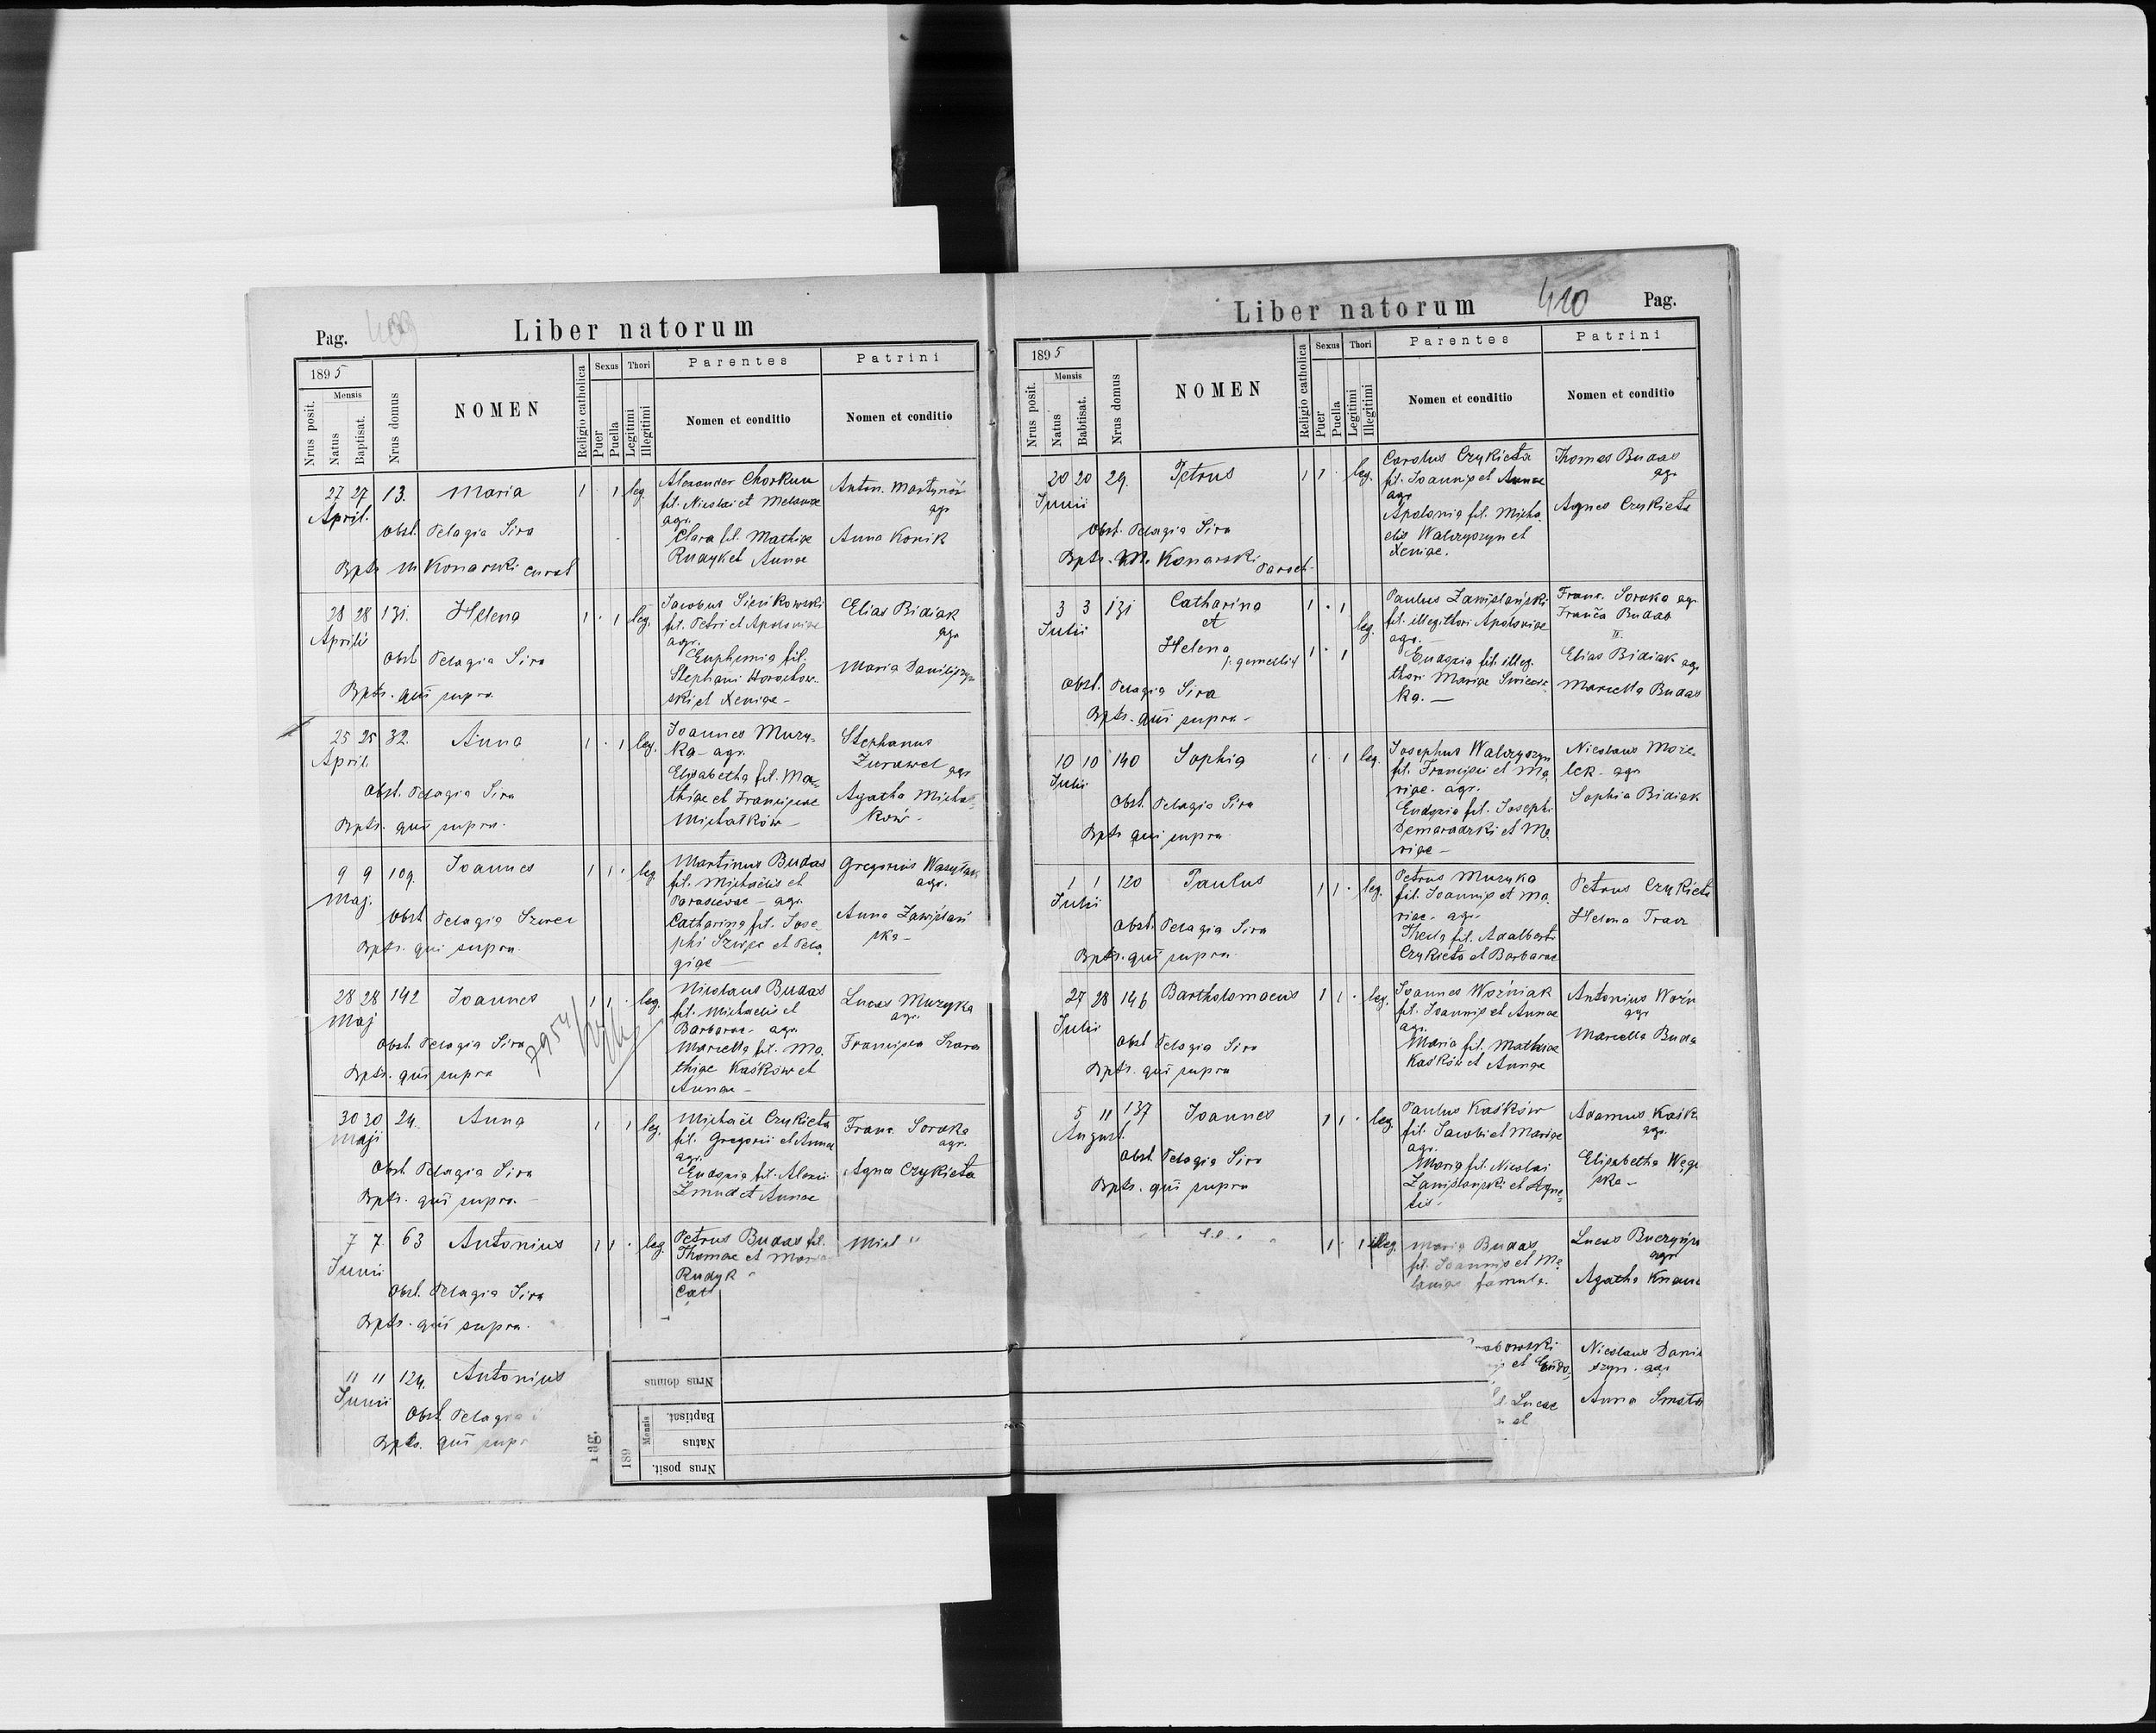 Pag. 409
Liber natorum
1895
Mensis
Nrus posit.
Natus
Baptisat.
Nrus domus
NOMEN
Religio catholica
Sexus
Puer
Puella
Thori
Legitimi
Illegitimi
Parentes
Nomen et conditio
Patrini
Nomen et conditio
27 27 13. Maria 1 · 1 leg.
April.
Obst. Pelagia Sira
Bpts. M Konarski curat
Alexander Chorkun
fil. Nicolai et Melaniae
agr.
Clara fil. Mathiae
Rudyk et Annae
Anton. Martynów
agr.
Anna Konik
28 28 131. Helena 1 · 1 leg.
Aprilis
Obst Pelagia Sira
Bpts. qui supra
Jacobus Sieńkowski
fil. Petri et Apoloniae
agr.
Euphemia fil.
Stephani Horochow-
ski et Xeniae -
Elias Bidiak
agr.
Maria Daniliszyn
25 25 32. Anna 1 · 1 leg.
April.
Obst. Pelagia Sira
Bpts. qui supra.
Joannes Muzy-
ka - agr.
Elisabetha fil. Ma-
thiae et Franciscae
Michałków -
Stephanus
Żurawel agr
Agatha Michał-
ków -
9 9 109. Joannes 1 1 · leg.
Maj.
Obst Pelagia Szwec
Bpts. qui supra.
Martinus Budas
fil. Michaëlis et
Parascevae - agr.
Catharina fil. Jose-
phi Szwec et Pela-
giae -
Gregorius Wasylak
agr.
Anna Zawiślań
ska -
28 28 142 Joannes 1 1 · leg.
Maj
Obst. Pelagia Sira
Bpts. qui supra
Nicolaus Budas
fil. Michaelis et
Barbarae - agr.
Marcella fil. Ma-
thiae Kaśków et
Annae -
Lucas Muzyka
agr.
Francisca
30 30 24. Anna 1 1 leg.
Maji
Obst Pelagia Sira
Bpts. qui supra. -
Michaël Czykieta
fil. Gregorii et Annae
agr.
Eudoxia fil. Alexii
Żmud et Annae
Franc. Soroka
agr.
Agnes Czykieta
7 7 63 Antonius 1 1 · leg
Junii
Obst. Pelagia Sira
Bpts. qui supra.
Petrus Budas fil.
Thomae et Maria
Rudyk
Cat
Mich
11 11 124. Antonius
Junii
Obst Pelagia
Bpts. qui supr
Pag.
189
Mensis
Nrus domus
Baptisat.
Natus
Nrus posit.
Liber natorum
410 Pag.
1895
Mensis
Nrus posit.
Natus
Babtisat.
Nrus domus
NOMEN
Religio catholica
Sexus
Puer
Puella
Thori
Legitimi
Illegitimi
Parentes
Nomen et conditio
Patrini
Nomen et conditio
20 20 29. Petrus 1 1 · leg.
Junii
Obst. Pelagia Sira
Bpts. M. Konarski Paroch
Carolus Czykieta
fil. Joannis et Annae
agr
Apolonia fil. Micha-
elis Walczyszyn et
Xeniae.
Thomas Budas
agr.
Agnes Czykieta
3 3 131 Catharina 1 · 1
Julii
et
leg.
Helena 1 · 1
gemellis
Obst. Pelagia Sira
Bpts. qui supra -
Paulus Zawislański
fil. illeg. thori Apoloniae
agr. -
Eudoxia fil. illeg.
thori Mariae
ka. -
Franc. Soroka agr
Franca Budas
II.
Elias Bidiak agr
Marcella Budas
10 10 140 Sophia 1 · 1 leg.
Julii
Obst Pelagia Sira
Bpts qui supra
Josephus Walczyszyn
fil. Francisci et Ma-
riae. agr.
Eudoxia fil. Josephi
Demaradzki et Ma-
riae -
Nicolaus Moze-
lek - agr
Sophia Bidiak
1 1 120 Paulus 1 1 · leg.
Julii
Obst. Pelagia Sira
Bpts. qui supra.
Petrus Muzyka
fil. Joannis et Ma-
riae. agr.
Thecla fil. Adalberti
Czykieta et Barbarae
Petrus Czykieta
Helena Tracz
27 28 146 Bartholomaeus 1 1 · leg.
Julii
Obst Pelagia Sira
Bpts. qui supra
Joannes Woźniak
fil. Joannis et Annae
agr.
Maria fil. Mathiae
Kaśków et Annae
Antonius Woźn
agr
Marcella Buda
5 11 137 Joannes 1 1 · leg.
August.
Obst Pelagia Sira
Bpts. qui supra
Paulus Kaśków
fil. Jacobi et Mariae
agr.
Maria fil. Nicolai
Zawiślański et Agne-
tis -
Adamus Kaśk
agr.
Elisabetha Węg
ska -
1 · 1 illeg.
Maria Budas
fil. Joannis et Me-
laniae famula.
Lucas
agr
Agatha
abowski
et Eudo-
Lucae
et
Nicolaus Dani
szyn. agr
Anna